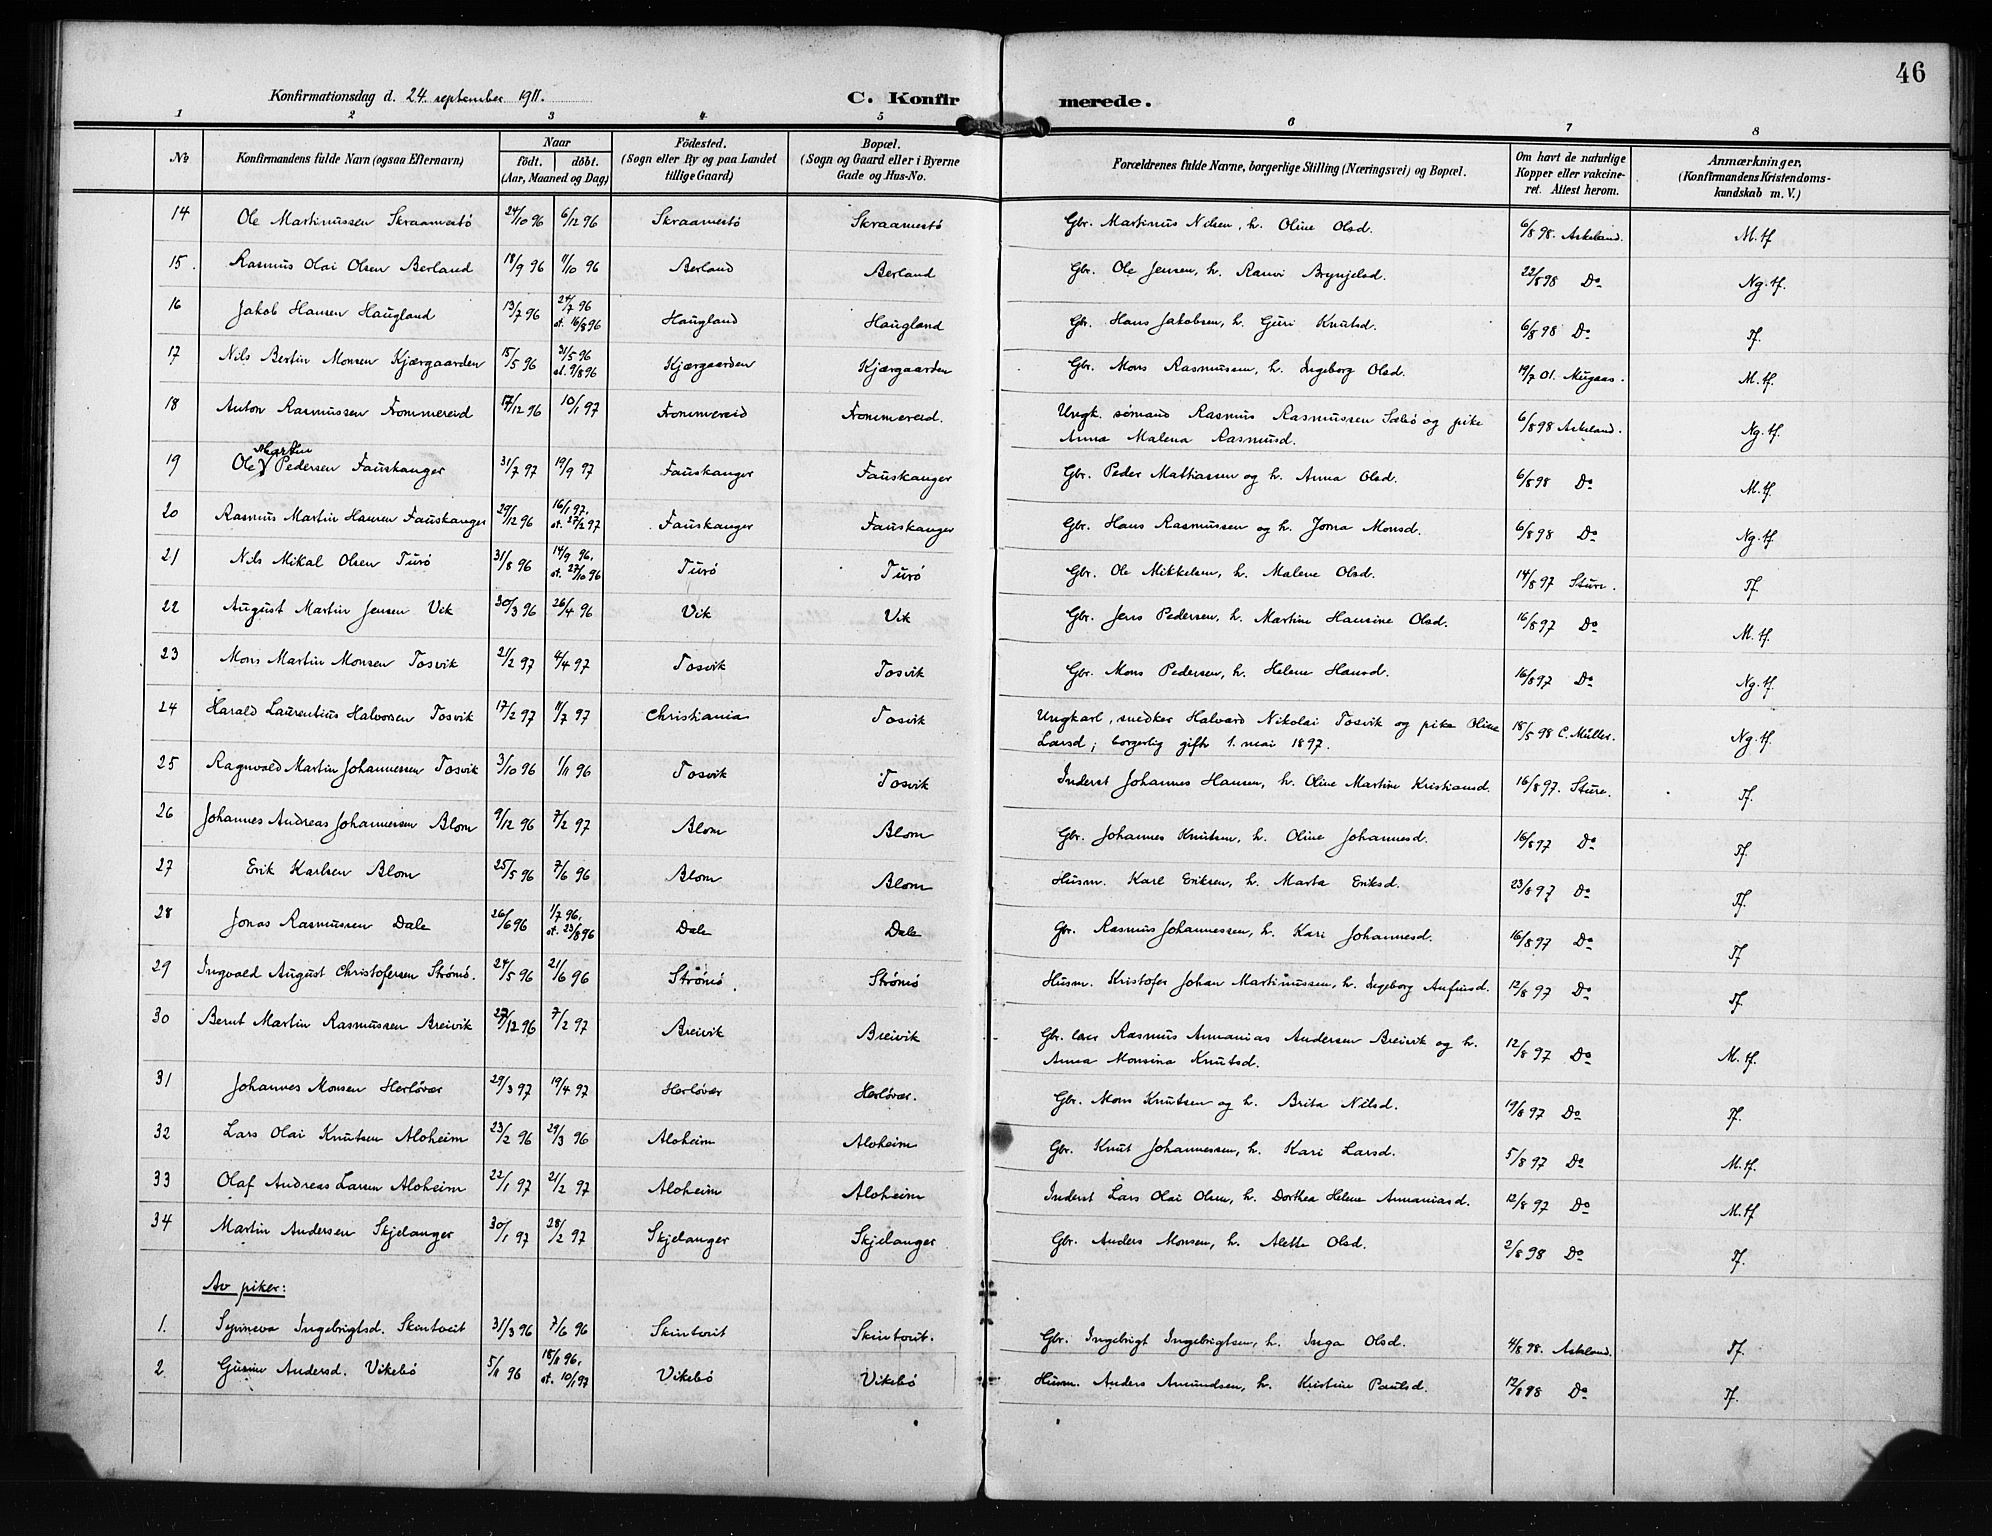 46
Konfirmationsdag d. 24. september 1911.
C. Konfirmerede.
1 2 3 4 5 6 7 8
No
Konfirmandens fulde Navn (ogsaa Efternavn)
Naar
født. døbt.
(Aar, Maaned og Dag)
Fødested.
(Sogn eller By og paa Landet
tillige Gaard)
Bopæl.
(Sogn og Gaard eller i Byerne
Gade og Hus-No.
Forældrenes fulde Navne, borgerlige Stilling (Næringsvei) og Bopæl.
Om havt de naturlige
Kopper eller vakcine-
ret. Attest herom.
Anmærkninger,
(Konfirmandens Kristendoms-
kundskab m. V.)
14 Ole Martinussen Skraamestø 24/10 96 6/12 96 Skraamestø Skraamestø Gbr. Martinus Nilsen, h. Oline Olsd. 6/8 98. Askeland. M.tf
15. Rasmus Olai Olsen Berland 18/9 96 11/10 96 Berland Berland Gbr. Ole Jensen, h. Ranvi Brynjelsd. 22/8 98 Do Ng.tf.
16 Jakob Hansen Haugland 13/7 96 24/7 96 st. 16/8 96 Haugland Haugland Gbr. Hans Jakobsen, h. Guri Knutsd. 6/8 98 Do Tf.
17 Nils Bertin Monsen Kjærgaarden 15/5 96 31/5 96 st. 9/8 96 Kjærgaarden Kjærgaarden Gbr. Mons Rasmussen, h. Ingeborg Olsd. 19/7 01. Mugaas. M.tf.
18 Anton Rasmussen Frommereid 17/12 96 10/1 97 Frommereid Frommereid. Ungk. sømand Rasmus Rasmussen Sæbø og pike
Anna Malena Rasmusd. 6/8 98 Askeland. Ng.tf.
19 Ole Martin Pedersen Fauskanger 31/7 97 19/9 97 Fauskanger Fauskanger Gbr. Peder Mathiassen og h. Anna Olsd. 6/8 98 Do M.tf.
20 Rasmus Martin Hansen Fauskanger 29/12 96 16/1 97. st. 27/2 97 Fauskanger Fauskanger Gbr. Hans Rasmussen og h. Jorna Monsd. 6/8 98 Do Ng.tf.
21 Nils Mikal Olsen Turø 31/8 96 14/9 96. st. 27/10 96 Turø Turø Gbr. Ole Mikkelsen, h. Malene Olsd. 14/8 97 Sture. Tf.
22 August Martin Jensen Vik 30/3 96 26/4 96 Vik Vik Gbr. Jens Pedersen, h. Martine Hansine Olsd. 16/8 97 Do M.tf.
23 Mons Martin Monsen Tosvik 21/2 97 4/4 97 Tosvik Tosvik Gbr. Mons Pedersen, h. Helene Hansd. 16/8 97 Do Ng.tf.
24 Harald Laurentius Halvorsen Tosvik 17/2 97 11/7 97 Christiania Tosvik Ungkarl, snedker Halvard Nikolai Tosvik og pike Oline
Larsd; borgerlig gift 1. mai 1897. 18/5 98 C. Müller. Ng.tf.
25 Ragnvald Martin Johannessen Tosvik 3/10 96 1/11 96 Tosvik Tosvik Inderst Johannes Hansen, h. Oline Martine Kristiansd. 16/8 97. Sture. Tf.
26 Johannes Andreas Johannessen Blom 9/12 96 7/2 97 Blom Blom Gbr. Johannes Knutsen, h. Oline Johannesd. 16/8 97 Do Tf.
27 Erik Karlsen Blom 25/5 96 7/6 96 Blom Blom Husm. Karl Eriksen, h. Marta Eriksd. 23/8 97 Do Tf.
28 Jonas Rasmussen Dale 26/6 96 1/7 96. st. 23/8 96 Dale Dale Gbr. Rasmus Johannessen, h. Kari Johannesd. 16/8 97 Do Tf
29 Ingvald August Christofersen Strømø. 24/5 96 21/6 96 Strømø. Strømø Husm. Kristofer Johan Martinussen, h. Ingeborg Anfinsd. 12/8 97 Do Tf.
30 Bernt Martin Rasmussen Breivik 27/12 96 7/2 97 Breivik Breivik Gbr. Rasmus Annanias Andersen Breivik og h.
Anna Monsina Knutsd. 12/8 97 Do M.tf.
31 Johannes Monsen Herløvær 29/3 97 19/4 97 Herløvær Herløvær. Gbr. Mons Knutsen og h. Brita Nilsd. 19/8 97 Do Tf.
32 Lars Olai Knutsen Aloheim 23/2 96 29/3 96 Aloheim Aloheim Gbr. Knut Johannessen, h. Kari Larsd. 5/8 97 Do M.tf.
33 Olaf Andreas Larsen Aloheim 22/1 97 21/2 97 Aloheim Aloheim Inderst Lars Olai Olsen, h. Dorthea Helene Annaniasd. 12/8 97 Do M.tf
34 Martin Andersen Skjelanger 30/1 97 28/2 97 Skjelanger Skjelanger Gbr. Anders Monsen, h. Alette Olsd. 2/8 98 Do Tf.
Av piker:
1. Synneva Ingebrigtsd. Skintveit 31/3 96 7/6 96 Skintveit Skintveit. Gbr. Ingebrigt Ingebrigtsen, h. Inga Olsd. 4/8 98. Askeland. Tf.
2. Gurine Andersd. Vikebø 5/11 96 18/11 96. st. 10/1 97 Vikebø Vikebø Husm. Anders Amundsen, h. Kristine Paulsd. 12/8 98 Do Tf.